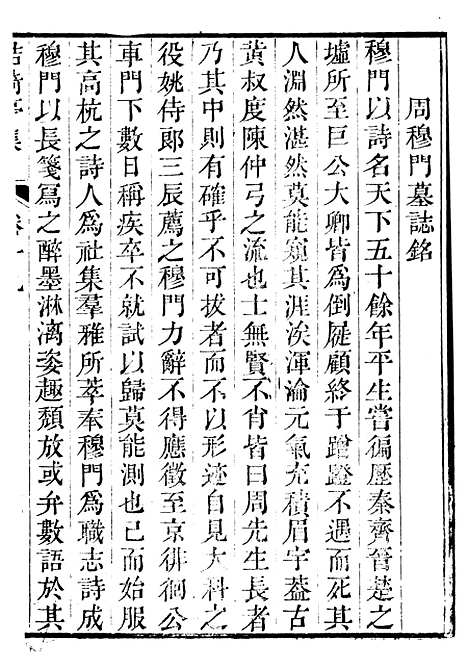 周穆門墓誌銘
穆門以詩名天下五十餘年平生嘗徧歷秦齊晉楚之
墟所至巨公大卿皆為倒屣顧終于蹭蹬不遇而死其
人淵然湛然莫能窺其涯涘渾淪元氣充積眉宇葢古
黃叔度陳仲弓之流也士無賢不肖皆曰周先生長者
乃其中則有確乎不可拔者而不以形迹自見大科之
役姚侍郎三辰薦之穆門力辭不得應徵至京徘徊公
車門下數日稱疾卒不就試以歸莫能測也已而始服
其高杭之詩人為社集羣雅所萃奉穆門為職志詩成
穆門以長箋寫之醉墨淋漓姿趣頹放或弁數語於其
鮚埼亭集 卷十九